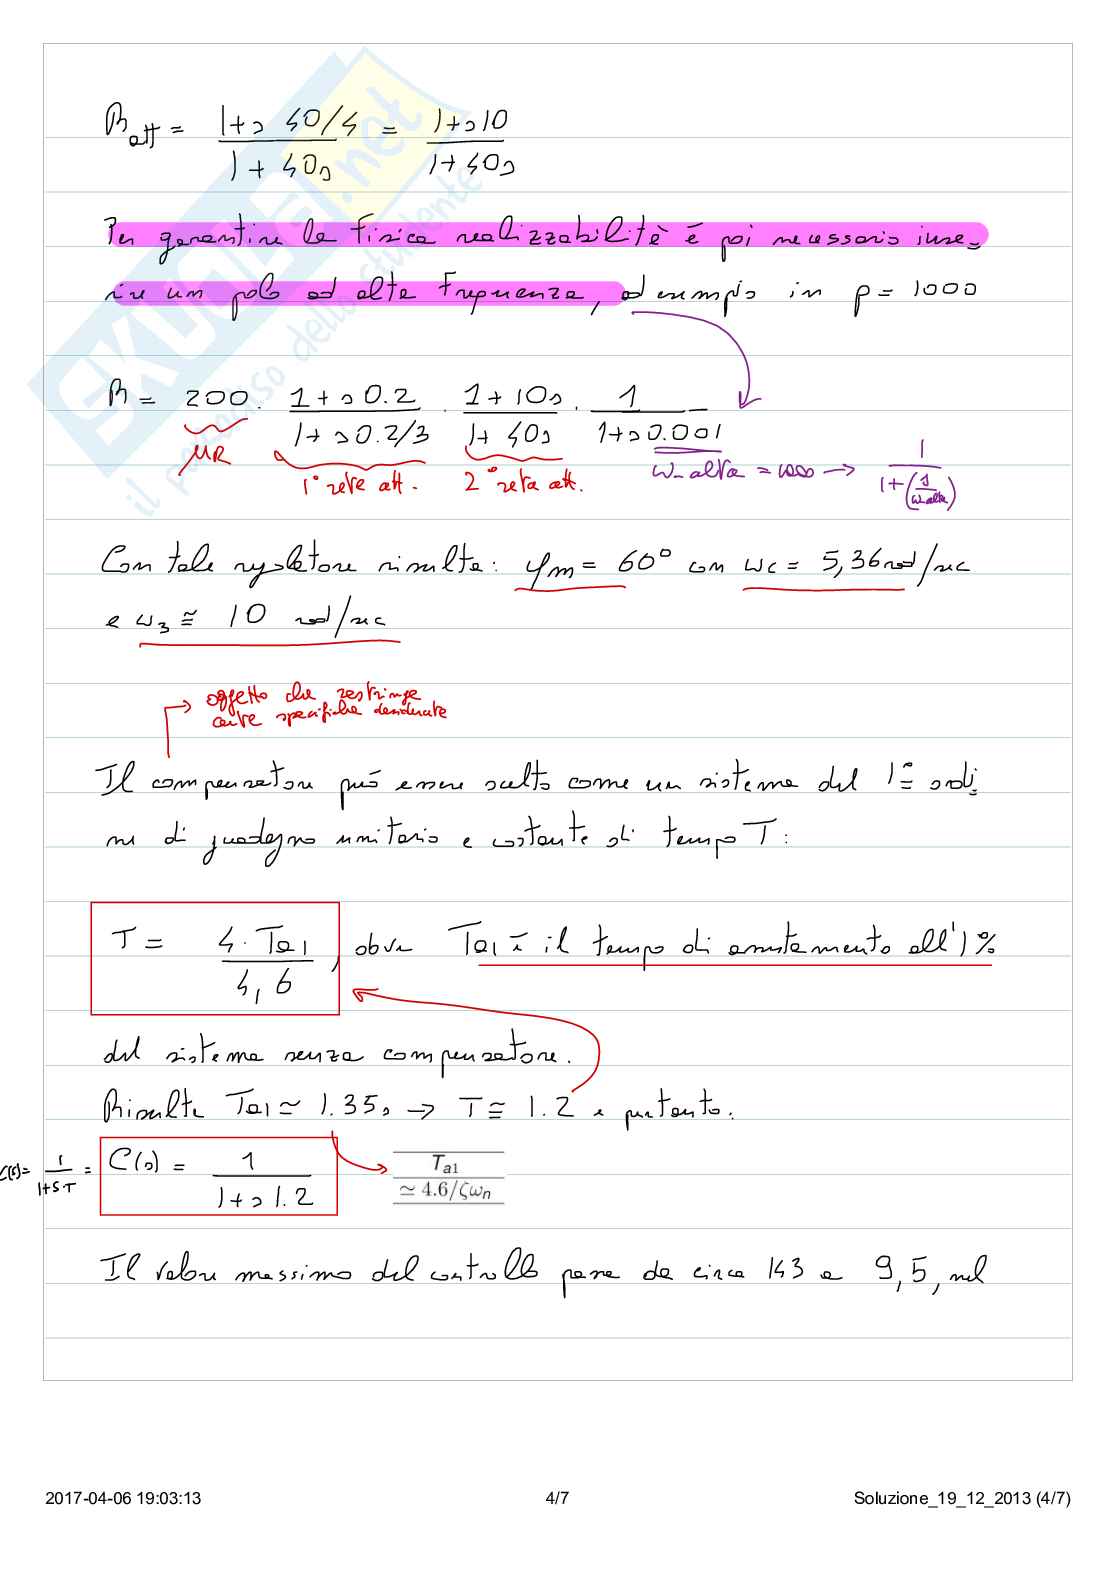 R_att = (1+s 40/4)/(1+40s) = (1+s10)/(1+40s)
Per garantire la fisica realizzabilità è poi necessario inse-
rire un polo ad alta frequenza, ad esempio in p = 1000
R = 200 · (1+s0.2)/(1+s0.2/3) · (1+10s)/(1+40s) · 1/(1+s0.001)
μR
1° rete att.
2° rete att.
ω_alta = 1000 → 1/(1+(s/ω_alta))
Con tale regolatore risulta: φm = 60° con ωc = 5,36 rad/sec
e ω3 ≅ 10 rad/sec
oggetto che restringe
certe specifiche desiderate
Il compensatore può essere scelto come un sistema del 1° ordi
ne di guadagno unitario e costante di tempo T:
T = 4·Ta1/4,6, dove Ta1 è il tempo di assestamento all'1%
del sistema senza compensatore.
Risulta Ta1 ≃ 1.35s → T ≅ 1.2 e pertanto:
C(s) = 1/(1+s·T) = C(s) = 1/(1+s1.2)
Ta1
≃ 4.6/ζωn
Il valore massimo del controllo passa da circa 143 a 9,5, nel
SKUOLA.net
il paradiso dello studente
2017-04-06 19:03:13
4/7
Soluzione_19_12_2013 (4/7)